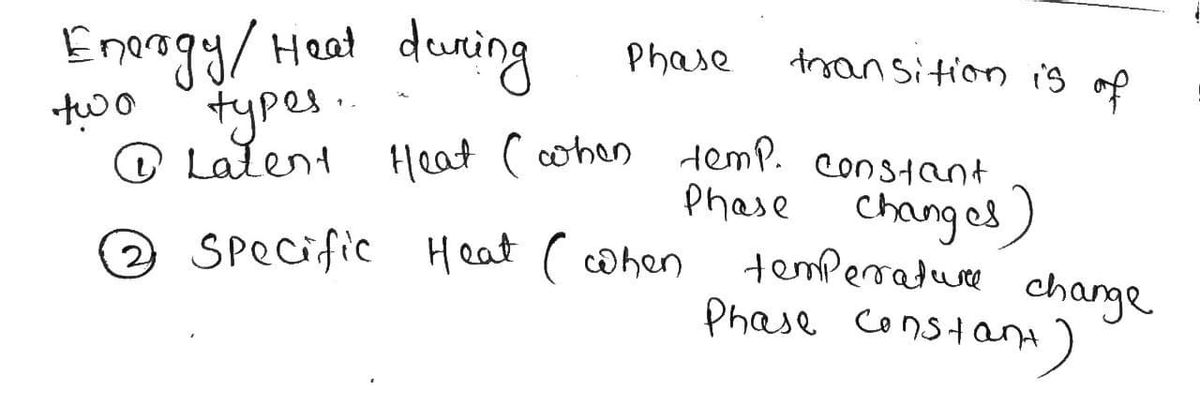 Energy/Heat during Phase transition is of
two types.
① Latent Heat (when temp. constant
Phase changes)
② Specific Heat (when temperature change
Phase constant)